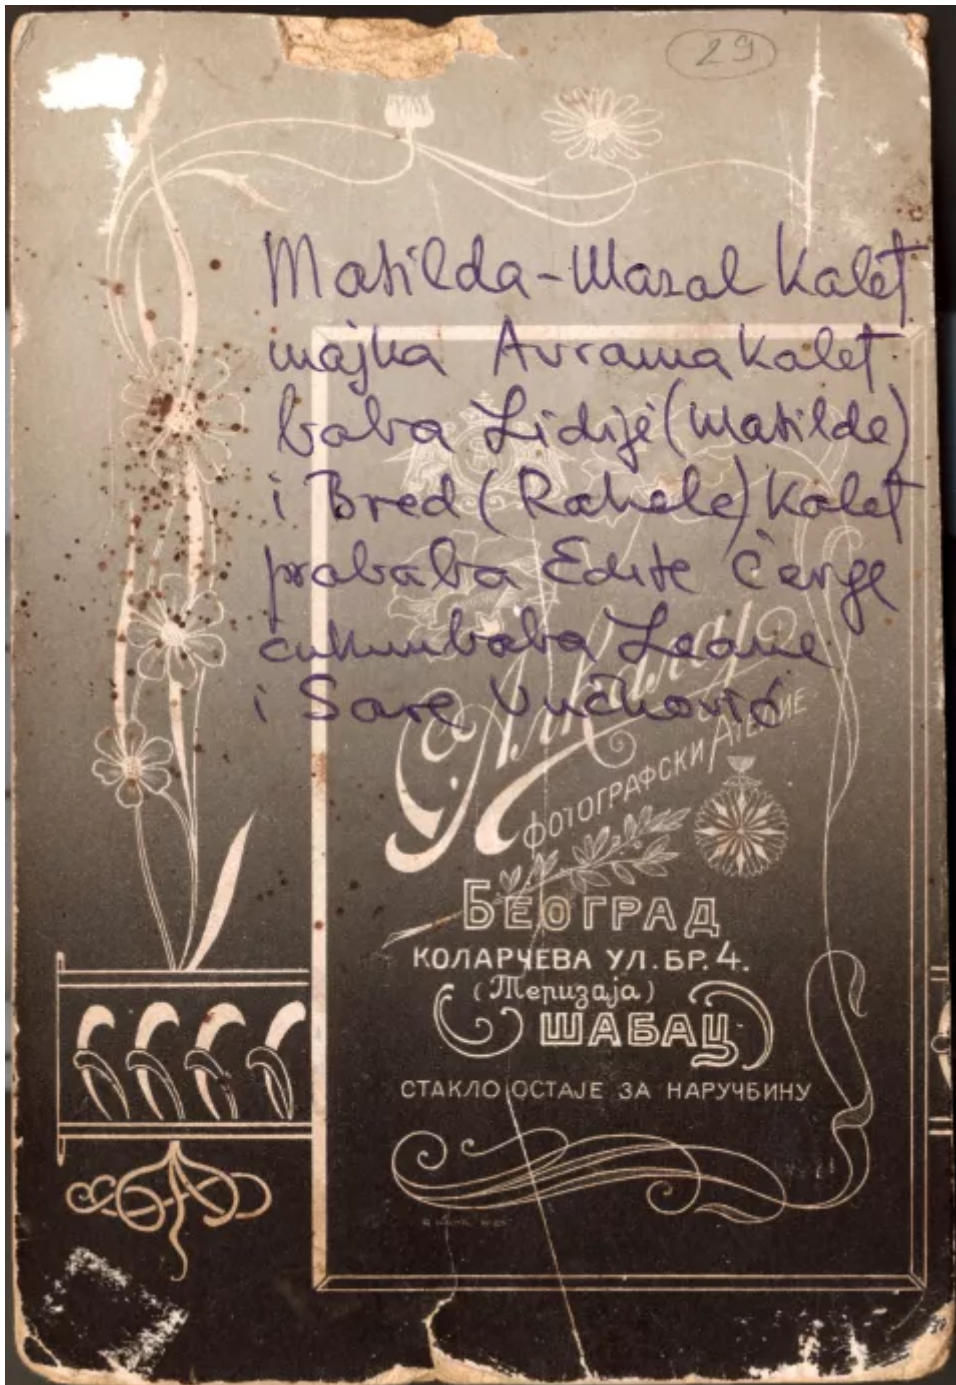 29
Matilda-Mazal Kalef
majka Avrama Kalef
baba Lidije (Matilde)
i Bred (Rahele) Kalef
prababa Edite Čerge
čukunbaba Leane
i Sare Vučković
ФОТОГРАФСКИ АТЕЉИЕ
БЕОГРАД
КОЛАРЧЕВА УЛ. БР. 4.
(Теризаја)
ШАБАЦ
СТАКЛО ОСТАЈЕ ЗА НАРУЧБИНУ